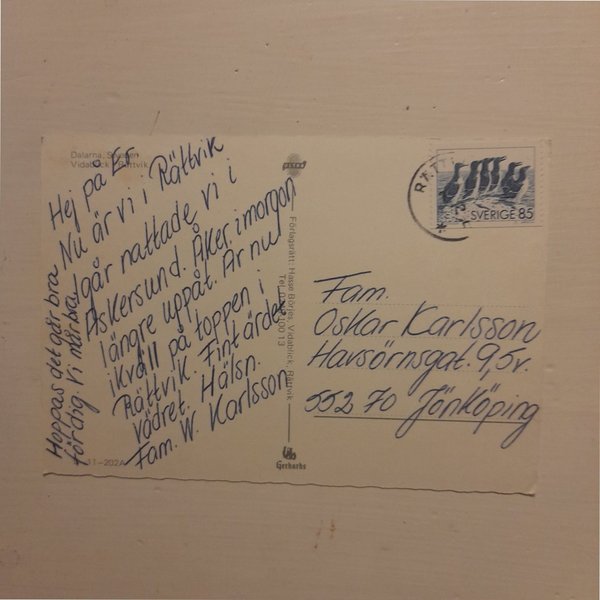 Dalarna. Sweden
Vidablick, Rättvik
Hej på Er
Nu är vi i Rättvik
Igår nattade vi i
Askersund. Åker imorgon
längre uppåt. Är nu
ikväll på toppen i
Rättvik. Fint är det
vädret. Hälsn.
Fam. W. Karlsson
Hoppas det går bra
för dig. Vi mår bra
Förlagsrätt: Hasse Börjes, Vidablick, Rättvik
Gerhards
RÄTT
SVERIGE 85
Fam.
Oskar Karlsson
Havsörnsgat. 9, 5v.
552 70 Jönköping